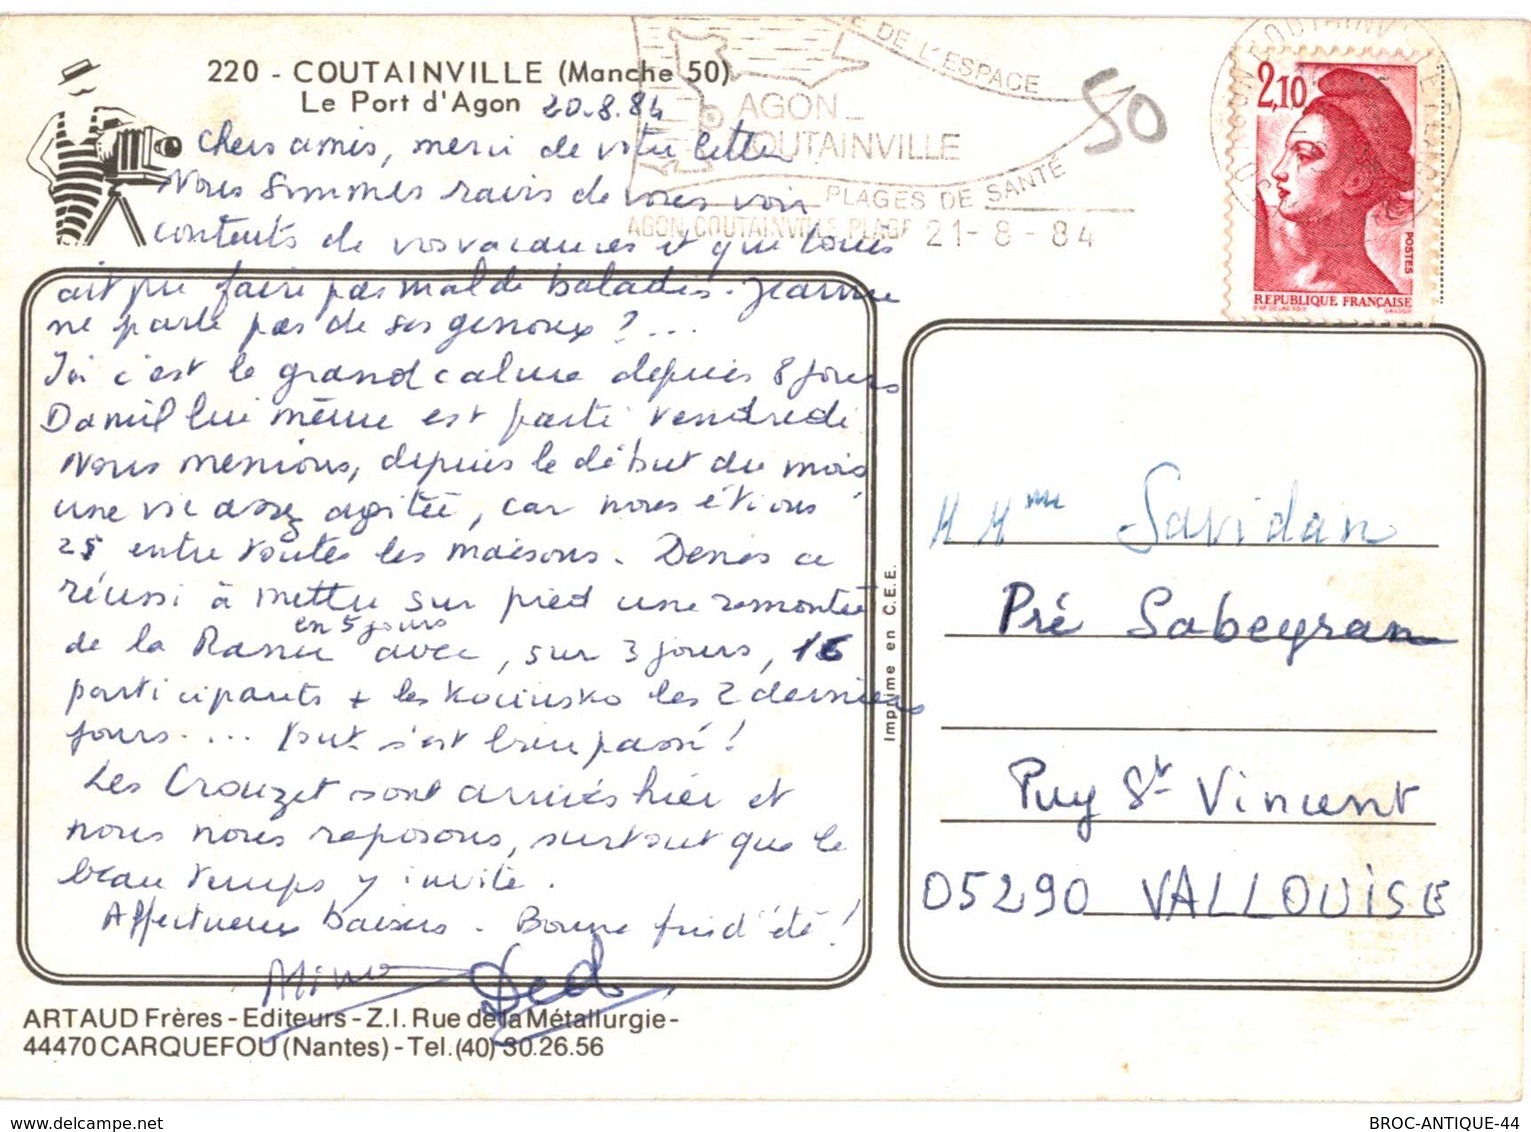 220 - COUTAINVILLE (Manche 50)
Le Port d'Agon 20.8.84
Chers amis, merci de votre lettre
Nous sommes ravis de vous voir
contents de vos vacances et que vous
ait pu faire pas mal de balades. Jeanne
ne parle pas de ses genoux ? ...
Ici c'est le grand calme depuis 8 jours
Daniel lui même est parti vendredi
Nous menions, depuis le début du mois
une vie assez agitée, car nous étions
25 entre toutes les maisons. Denis a
réussi à mettre sur pied une remontée
en 5 jours
de la Rance avec, sur 3 jours, 16
participants + les Kociusko les 2 derniers
jours .... tout s'est bien passé !
Les Crouzet sont arrivés hier et
nous nous reposons, surtout que le
beau temps y invite.
Affectueux baisers. Bonne fin d'été !
Mino Ded
ARTAUD Frères - Editeurs - Z.I. Rue de la Métallurgie -
44470 CARQUEFOU (Nantes) - Tel. (40) 30.26.56
Imprimé en C.E.E.
DE L'ESPACE
AGON_
COUTAINVILLE
PLAGES DE SANTÉ
AGON COUTAINVILLE PLAGE 21-8-84
50
2,10
POSTES
REPUBLIQUE FRANÇAISE
M Mme Savidan
Pré Sabeyran
Puy St Vincent
05290 VALLOUISE
BROC-ANTIQUE-44